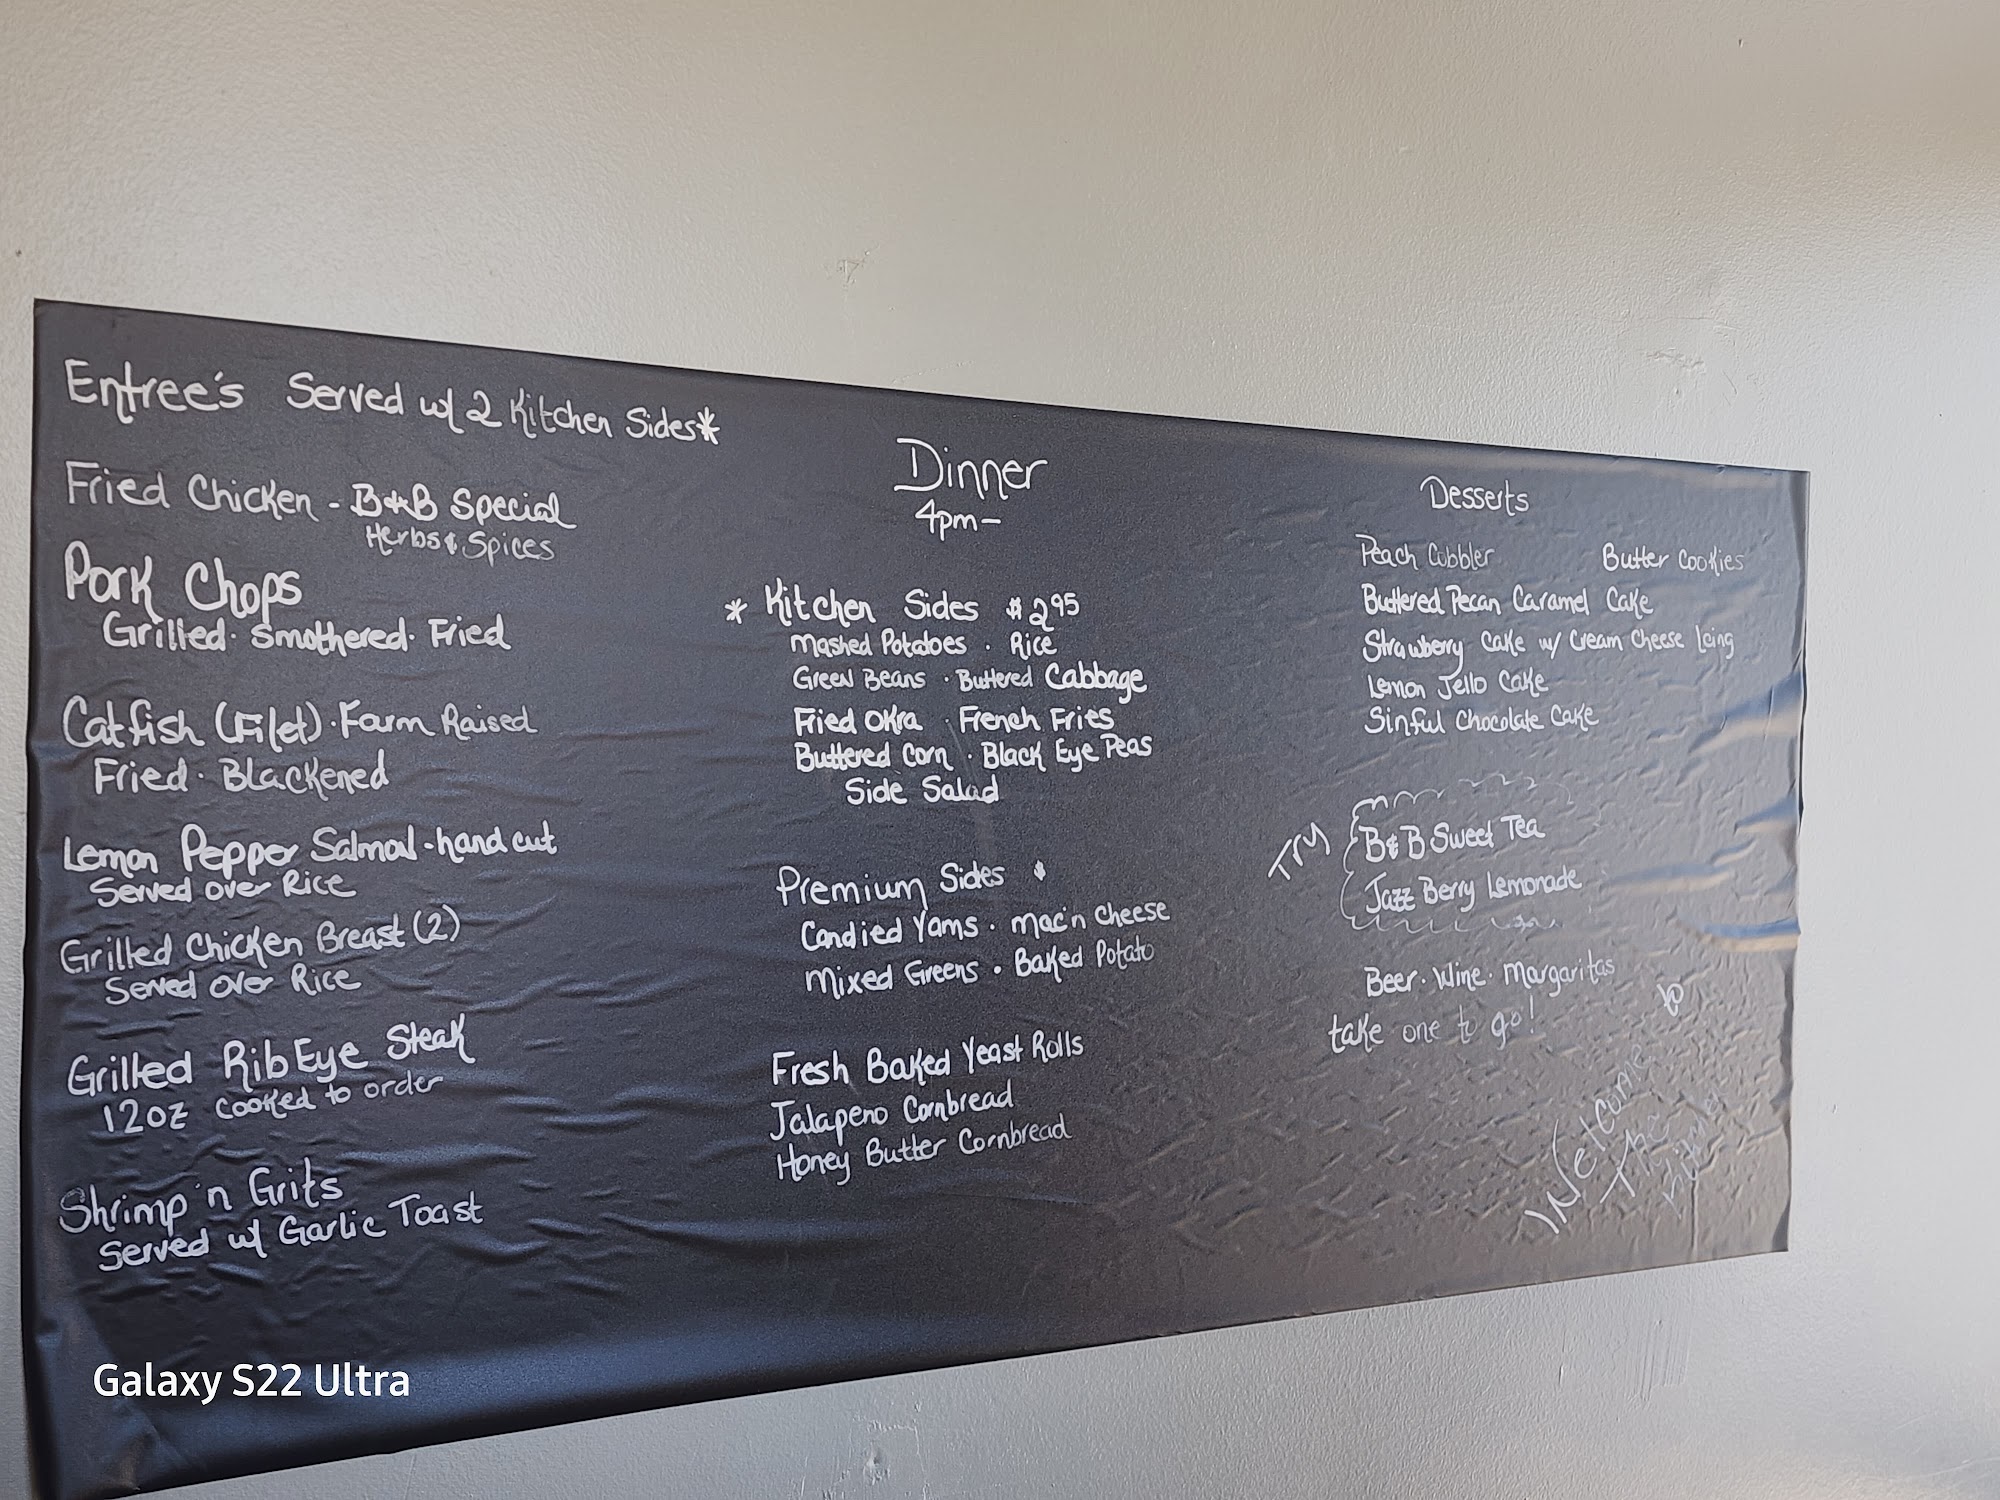 Entree's Served w/ 2 Kitchen Sides*
Fried Chicken - B&B Special
Herbs & Spices
Pork Chops
Grilled · Smothered · Fried
Catfish (Filet) · Farm Raised
Fried · Blackened
Lemon Pepper Salmon - hand cut
Served over Rice
Grilled Chicken Breast (2)
Served over Rice
Grilled RibEye Steak
12oz cooked to order
Shrimp 'n Grits
Served w/ Garlic Toast
Dinner
4pm-
* Kitchen Sides $2.95
Mashed Potatoes · Rice
Green Beans · Buttered Cabbage
Fried Okra · French Fries
Buttered Corn · Black Eye Peas
Side Salad
Premium Sides $
Candied Yams · Mac'n Cheese
Mixed Greens · Baked Potato
Fresh Baked Yeast Rolls
Jalapeno Cornbread
Honey Butter Cornbread
Desserts
Peach Cobbler Butter Cookies
Buttered Pecan Caramel Cake
Strawberry Cake w/ Cream Cheese Icing
Lemon Jello Cake
Sinful Chocolate Cake
Try
B&B Sweet Tea
Jazz Berry Lemonade
Beer · Wine · Margaritas
take one to go!
Welcome to
The
Galaxy S22 Ultra